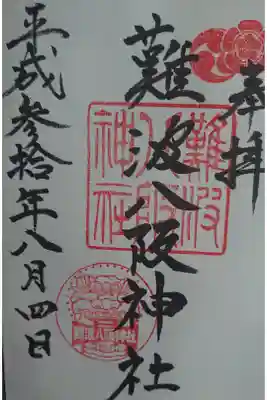 奉拝
難波八阪神社
平成参拾年八月四日
難波八阪神社